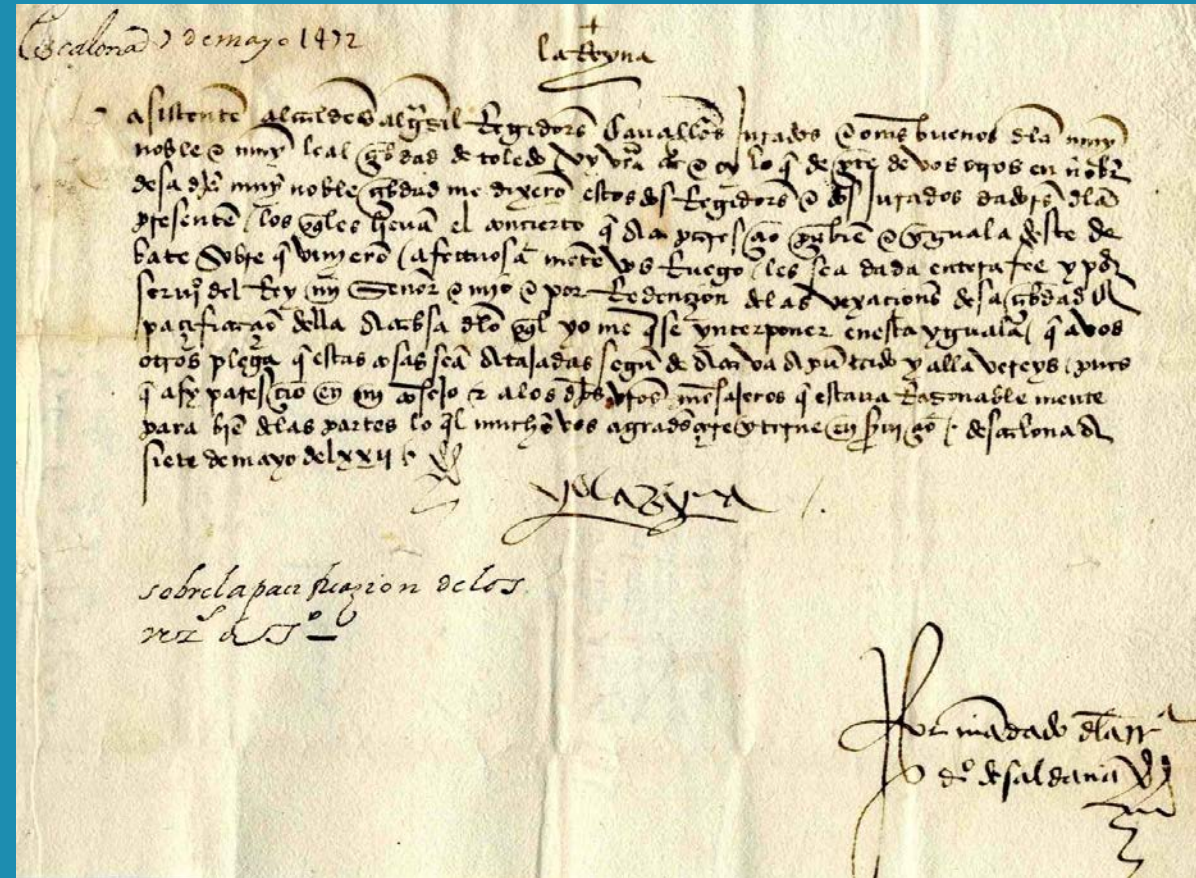 Escalona 7 de mayo 1472
la Reyna
asistente alcaldes alguasil Regidores Cavalleros Jurados e omes buenos dela muy
noble e muy leal çibdad de toledo vy vra e lo q de pte de vos otros en nobr
desa muy noble çibdad me dixero estos dos Regidores e dos Jurados dadores dla
presente los qles lleva el concierto q e yguala deste de
bate Sobre q vinyero afectuosa mente vos Ruego les sea dada entera fee y por
serui del Rey my Senor e mio e por Redenzion delas vexaciones desa çibdad e
pacificacio della A cabsa dlo ql yo me qse ynterponer enesta yguala q a vos
otros plega q estas cosas sea Atajadas segu de Aca va Apuntado y alla vereys pues
q asy paresçio en my cosejo e alos dhos vros mesajeros q estava Razonable mente
para bie delas partes lo ql mucho vos agradesçere y terne en desclalona A
siete de mayo de lxxii
yo la Reyna
sobre la pacificazion de los
vezs de To
Por madado dla Rª
dº de saldaña